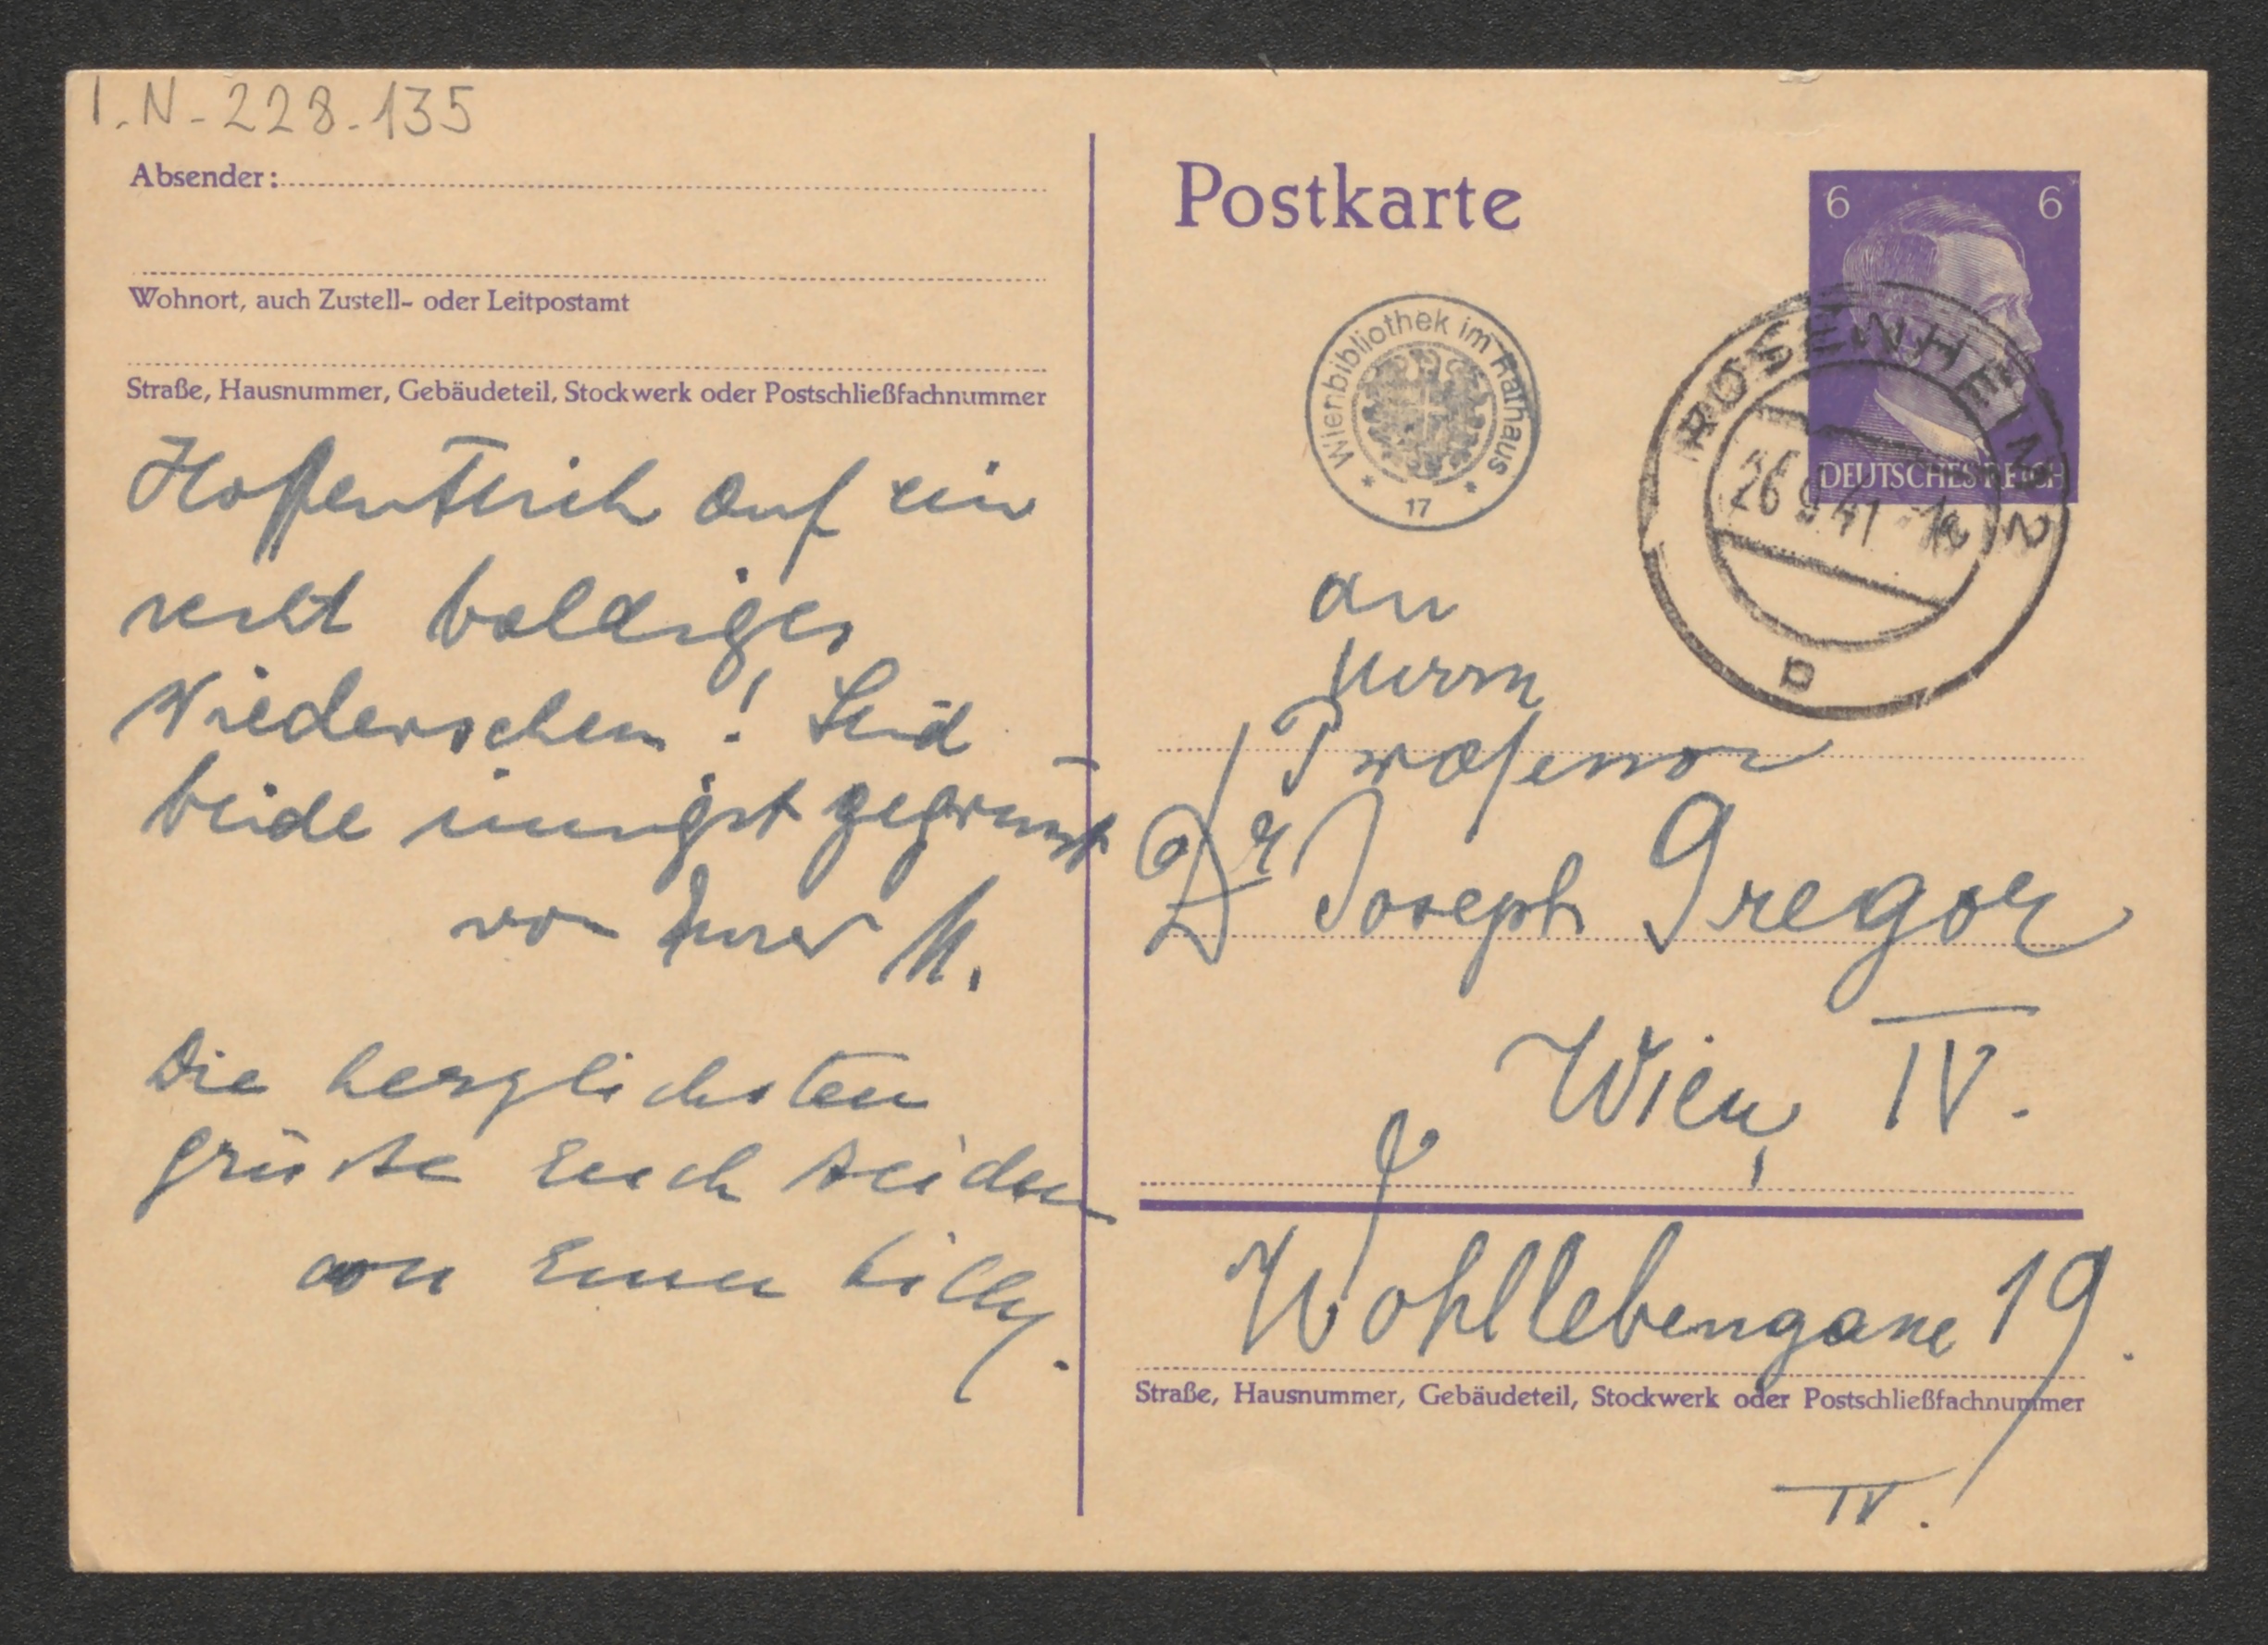 I.N-228.135
Absender:
Wohnort, auch Zustell- oder Leitpostamt
Straße, Hausnummer, Gebäudeteil, Stockwerk oder Postschließfachnummer
Hoffentlich auf ein
recht baldiges
Wiedersehen! Seid
beide innigst gegrüsst
von Eurer M.
Die herzlichsten
Grüsse Euch beiden
von Eurer Lilly.
Postkarte
6 6
DEUTSCHES REICH
Wienbibliothek im Rathaus
* 17 *
ROSENHEIM 2
26.9.41
b
An
Herrn
Professor
Dr Joseph Gregor
Wien, IV.
Wohllebengasse 19.
Straße, Hausnummer, Gebäudeteil, Stockwerk oder Postschließfachnummer
IV.